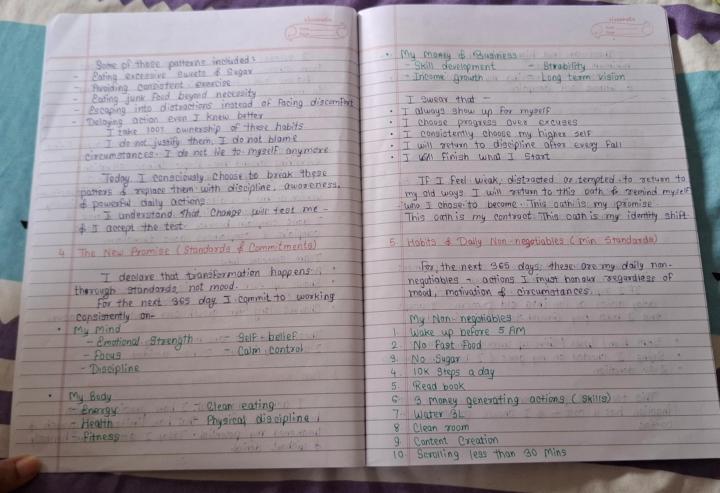 Some of those patterns included:
- Eating excessive sweets & sugar
- Avoiding consistent exercise
- Eating junk food beyond necessity
- Escaping into distractions instead of facing discomfort
- Delaying action even I knew better
I take 100% ownership of these habits
I do not justify them, I do not blame
circumstances. I do not lie to myself anymore
Today I consciously choose to break these
patters & replace them with discipline, awareness,
& powerful daily actions
I understand that change will test me -
& I accept the test
4. The New Promise (Standards & Commitments)
I declare that transformation happens
through standards, not mood.
For the next 365 day I commit to working
consistently on-
• My Mind
- Emotional Strength - Self-belief
- Focus - Calm control
- Discipline
• My Body
- Energy - Clean eating
- Health - Physical discipline
- Fitness
• My Money & Business
- Skill development - Stability
- Income growth - Long term vision
I swear that -
• I always show up for myself
• I choose progress over excuses
• I consistently choose my higher self
• I will return to discipline after every fall
• I will finish what I start
If I feel weak, distracted or tempted to return to
my old ways I will return to this oath & remind myself
who I chose to become. This oath is my promise
This oath is my contract. This oath is my identity shift
5. Habits & Daily Non-negotiables (min Standards)
For, the next 365 days, these are my daily non-
negotiables - actions I must honour regardless of
mood, motivation & circumstances.
My Non-negotiables
1. Wake up before 5 AM
2. No Fast Food
3. No Sugar
4. 10K Steps a day
5. Read book
6. 3 Money generating actions (Skills)
7. Water 3L
8. Clean room
9. Content Creation
10. Scrolling less than 30 Mins